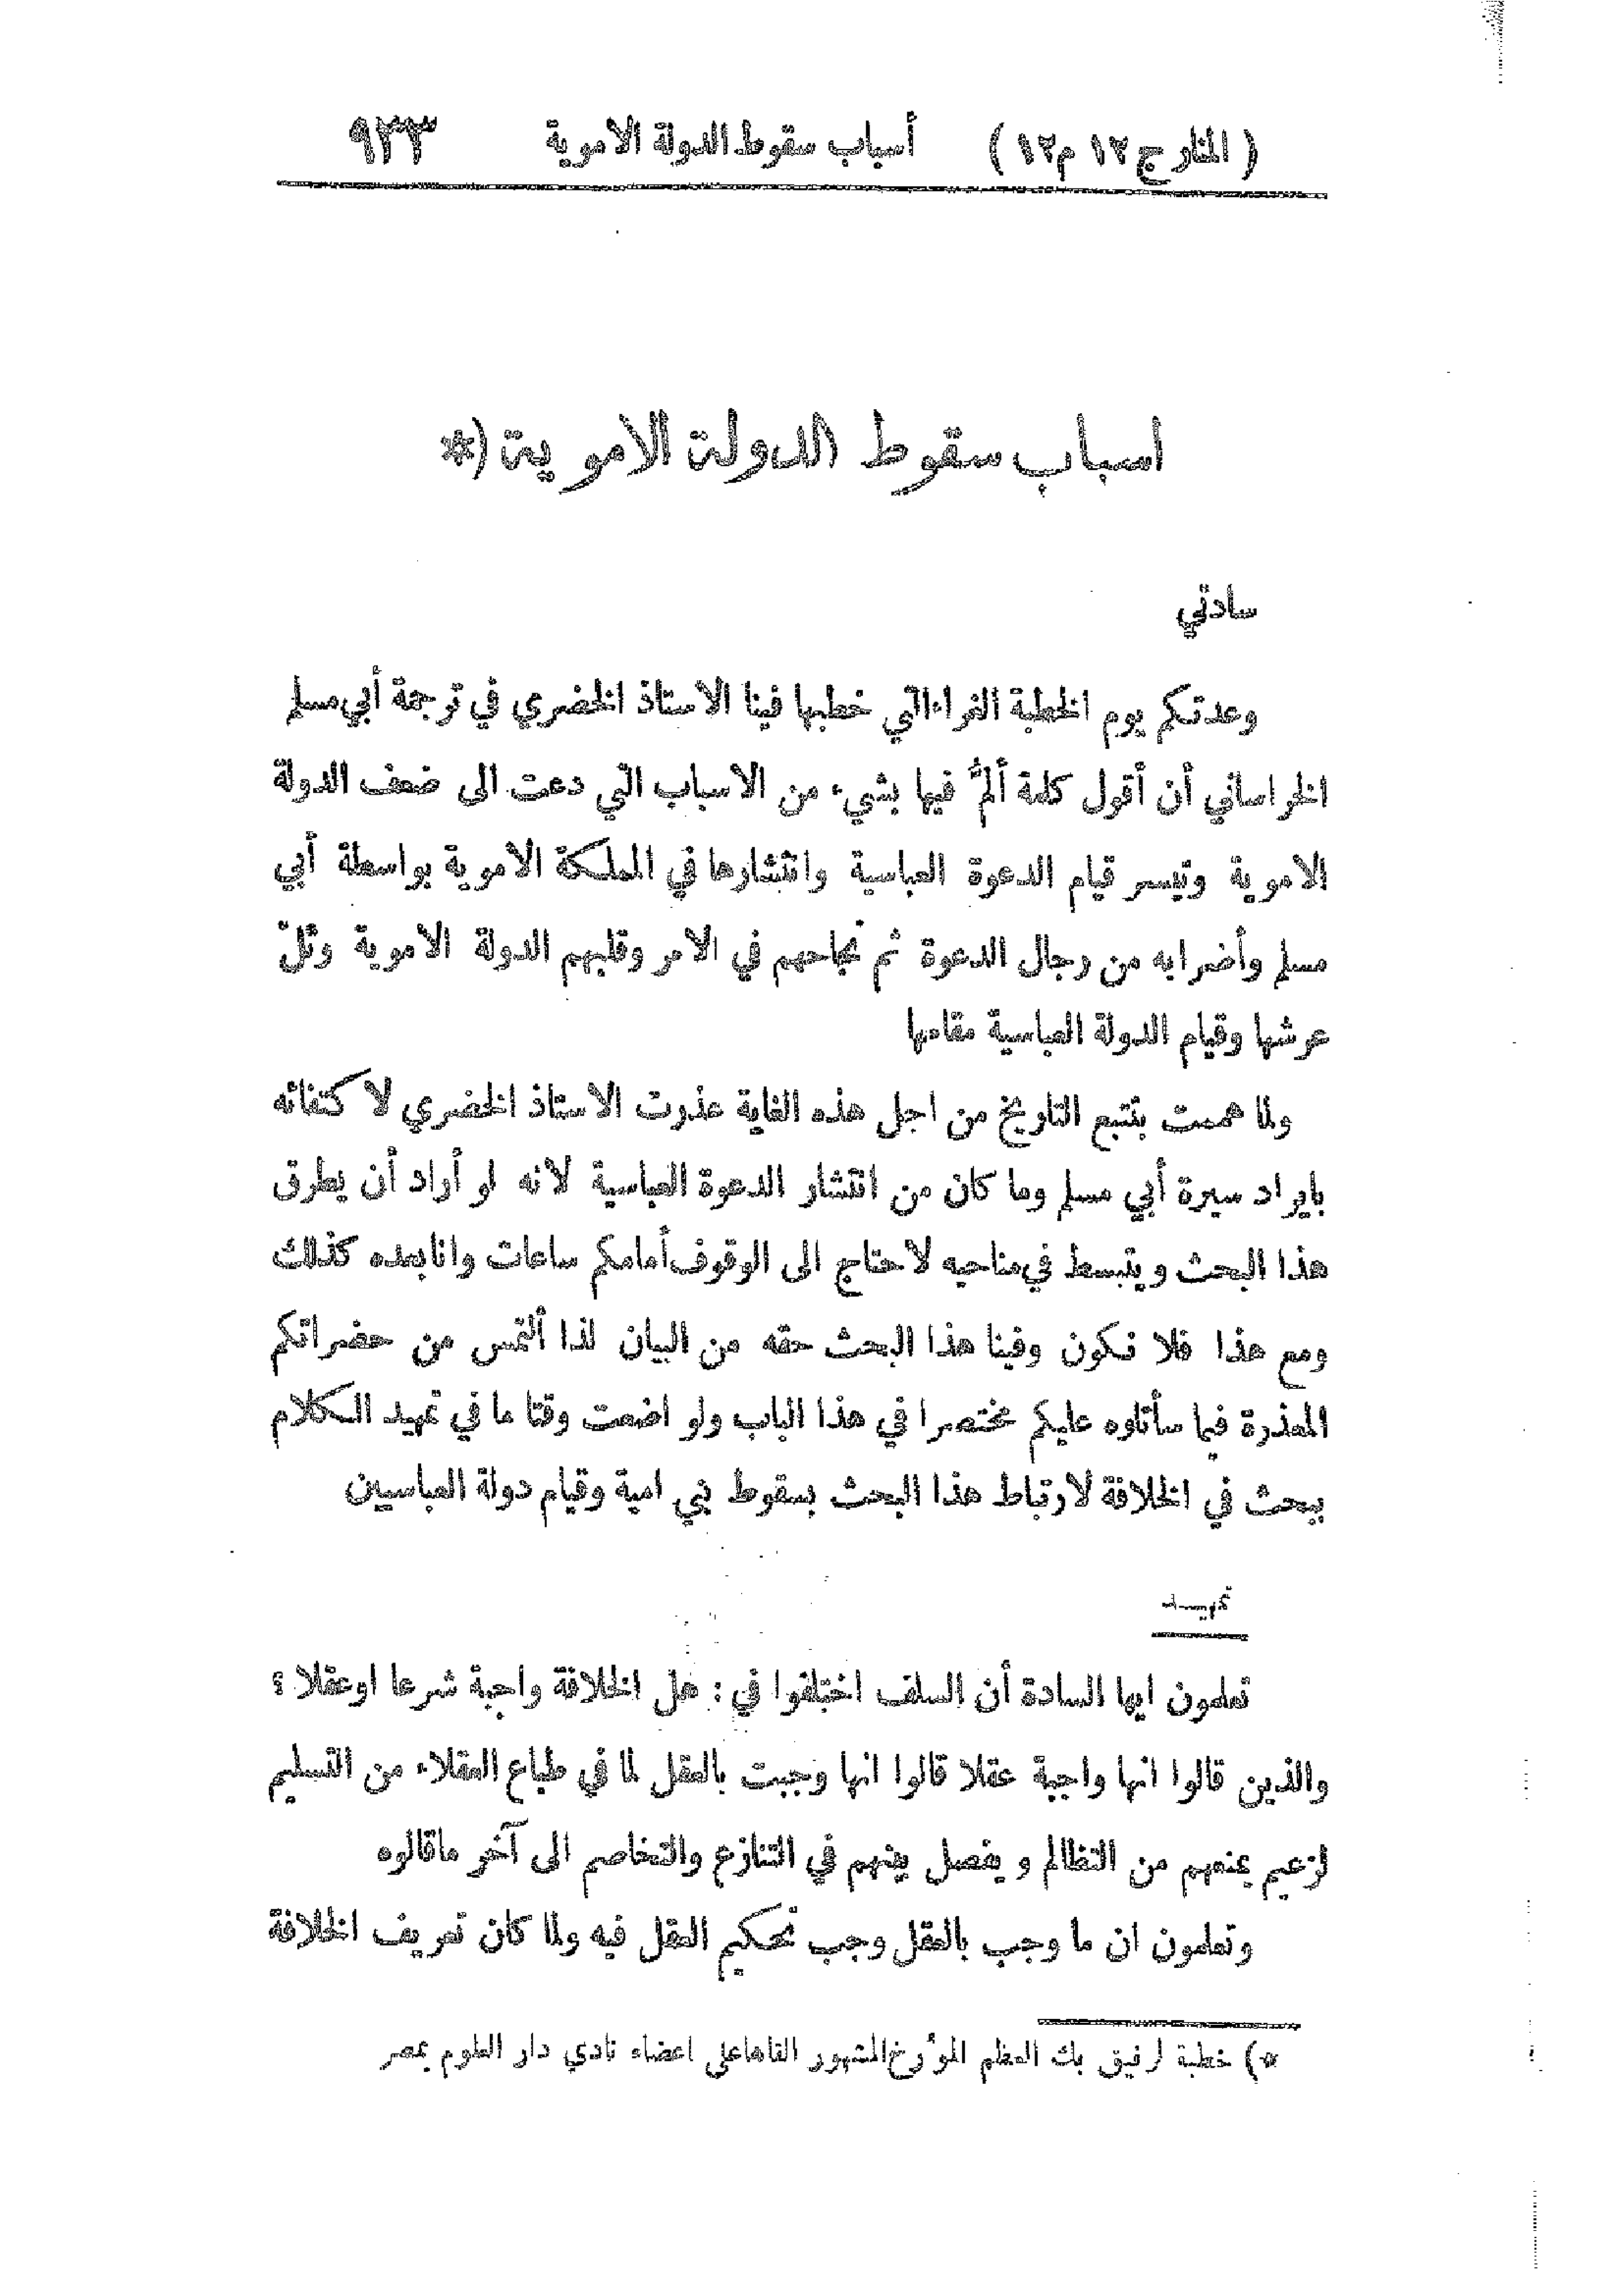 ( المنار ج ١٢ م ١٢ ) أسباب سقوط الدولة الاموية ٩٣٣
اسباب سقوط الدولة الاموية (*
سادتي
وعدتكم يوم الخطبة الغراء التي خطبها فينا الاستاذ الخضري في ترجمة أبي مسلم
الخراساني أن أقول كلمة ألمُّ فيها بشيء من الاسباب التي دعت الى ضعف الدولة
الاموية وتيسر قيام الدعوة العباسية وانتشارها في المملكة الاموية بواسطة أبي
مسلم وأضرابه من رجال الدعوة ثم نجاحهم في الامر وقلبهم الدولة الاموية وثلّ
عرشها وقيام الدولة العباسية مقامها
ولما هممت بتتبع التاريخ من اجل هذه الغاية عذرت الاستاذ الخضري لاكتفائه
بايراد سيرة أبي مسلم وما كان من انتشار الدعوة العباسية لانه لو أراد أن يطرق
هذا البحث ويتبسط في مناحيه لاحتاج الى الوقوف أمامكم ساعات وانا بعده كذلك
ومع هذا فلا نكون وفينا هذا البحث حقه من البيان لذا ألتمس من حضراتكم
المعذرة فيما سأتلوه عليكم مختصرا في هذا الباب ولو اضعت وقتا ما في تمهيد الكلام
ببحث في الخلافة لارتباط هذا البحث بسقوط بني امية وقيام دولة العباسيين
تمهيد
تعلمون ايها السادة أن السلف اختلفوا في : هل الخلافة واجبة شرعا او عقلا ؟
والذين قالوا انها واجبة عقلا قالوا انها وجبت بالعقل لما في طباع العقلاء من التسليم
لزعيم يمنعهم من التظالم ويفصل بينهم في التنازع والتخاصم الى آخر ماقالوه
وتعلمون ان ما وجب بالعقل وجب تحكيم العقل فيه ولما كان تعريف الخلافة
*) خطبة لرفيق بك العظم المؤرخ المشهور القاها على اعضاء نادي دار العلوم بمصر